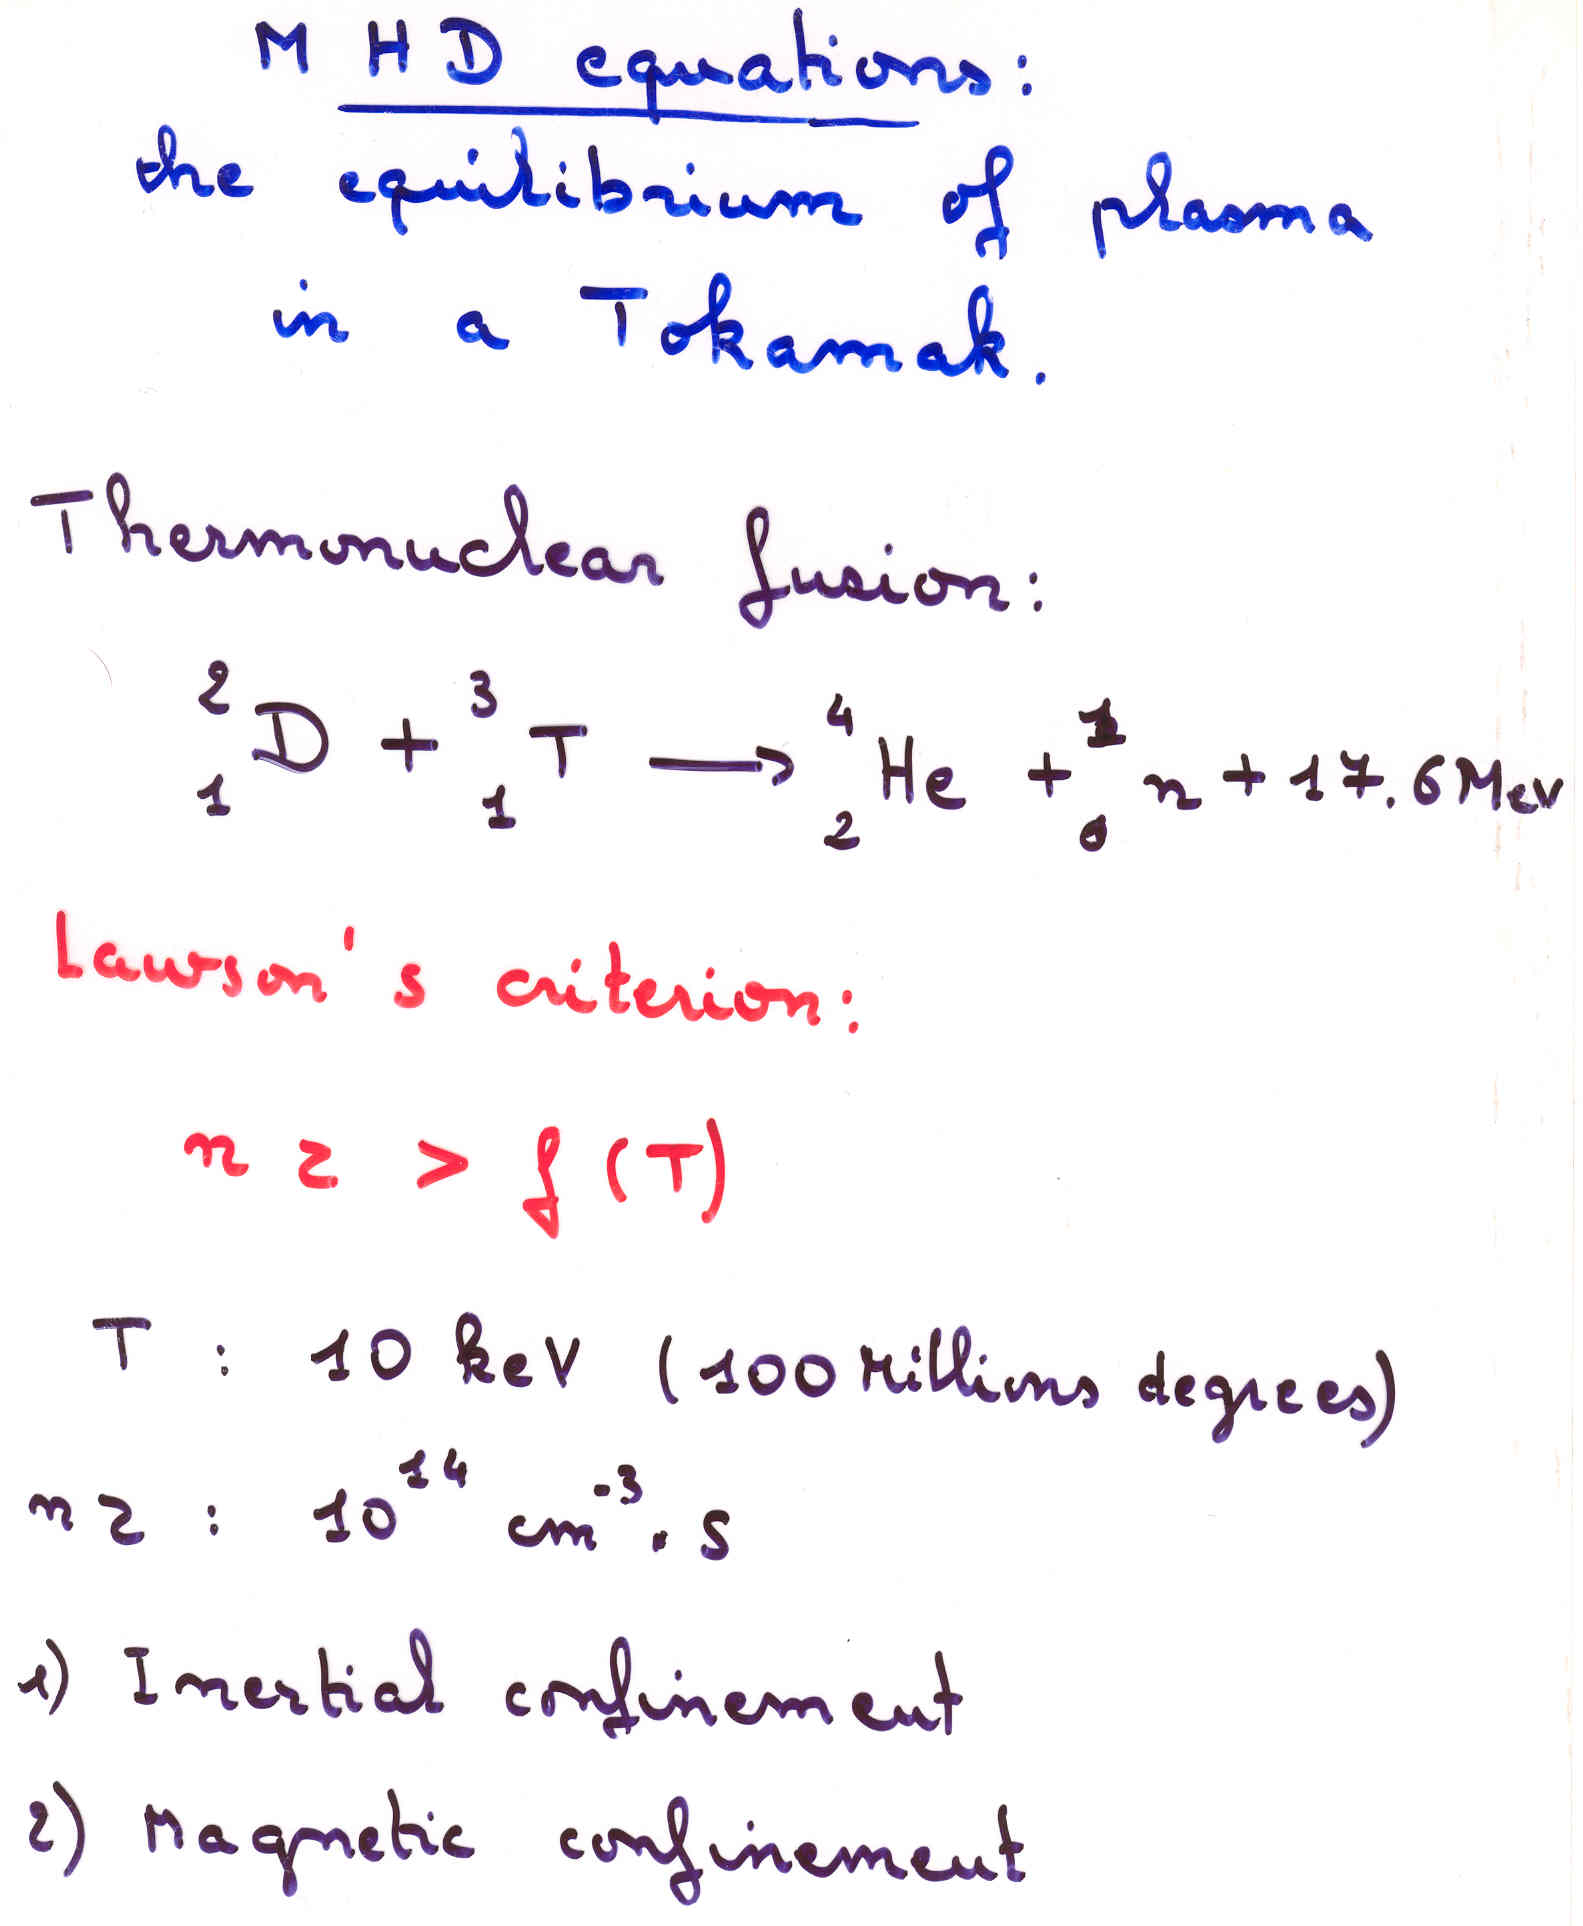 M H D equations:
the equilibrium of plasma
in a Tokamak.
Thermonuclear fusion:
²₁D + ³₁T → ⁴₂He + ¹₀n + 17.6 MeV
Lawson's criterion:
n τ > f (T)
T : 10 keV (100 Millions degrees)
n τ : 10¹⁴ cm⁻³ . s
1) Inertial confinement
2) Magnetic confinement